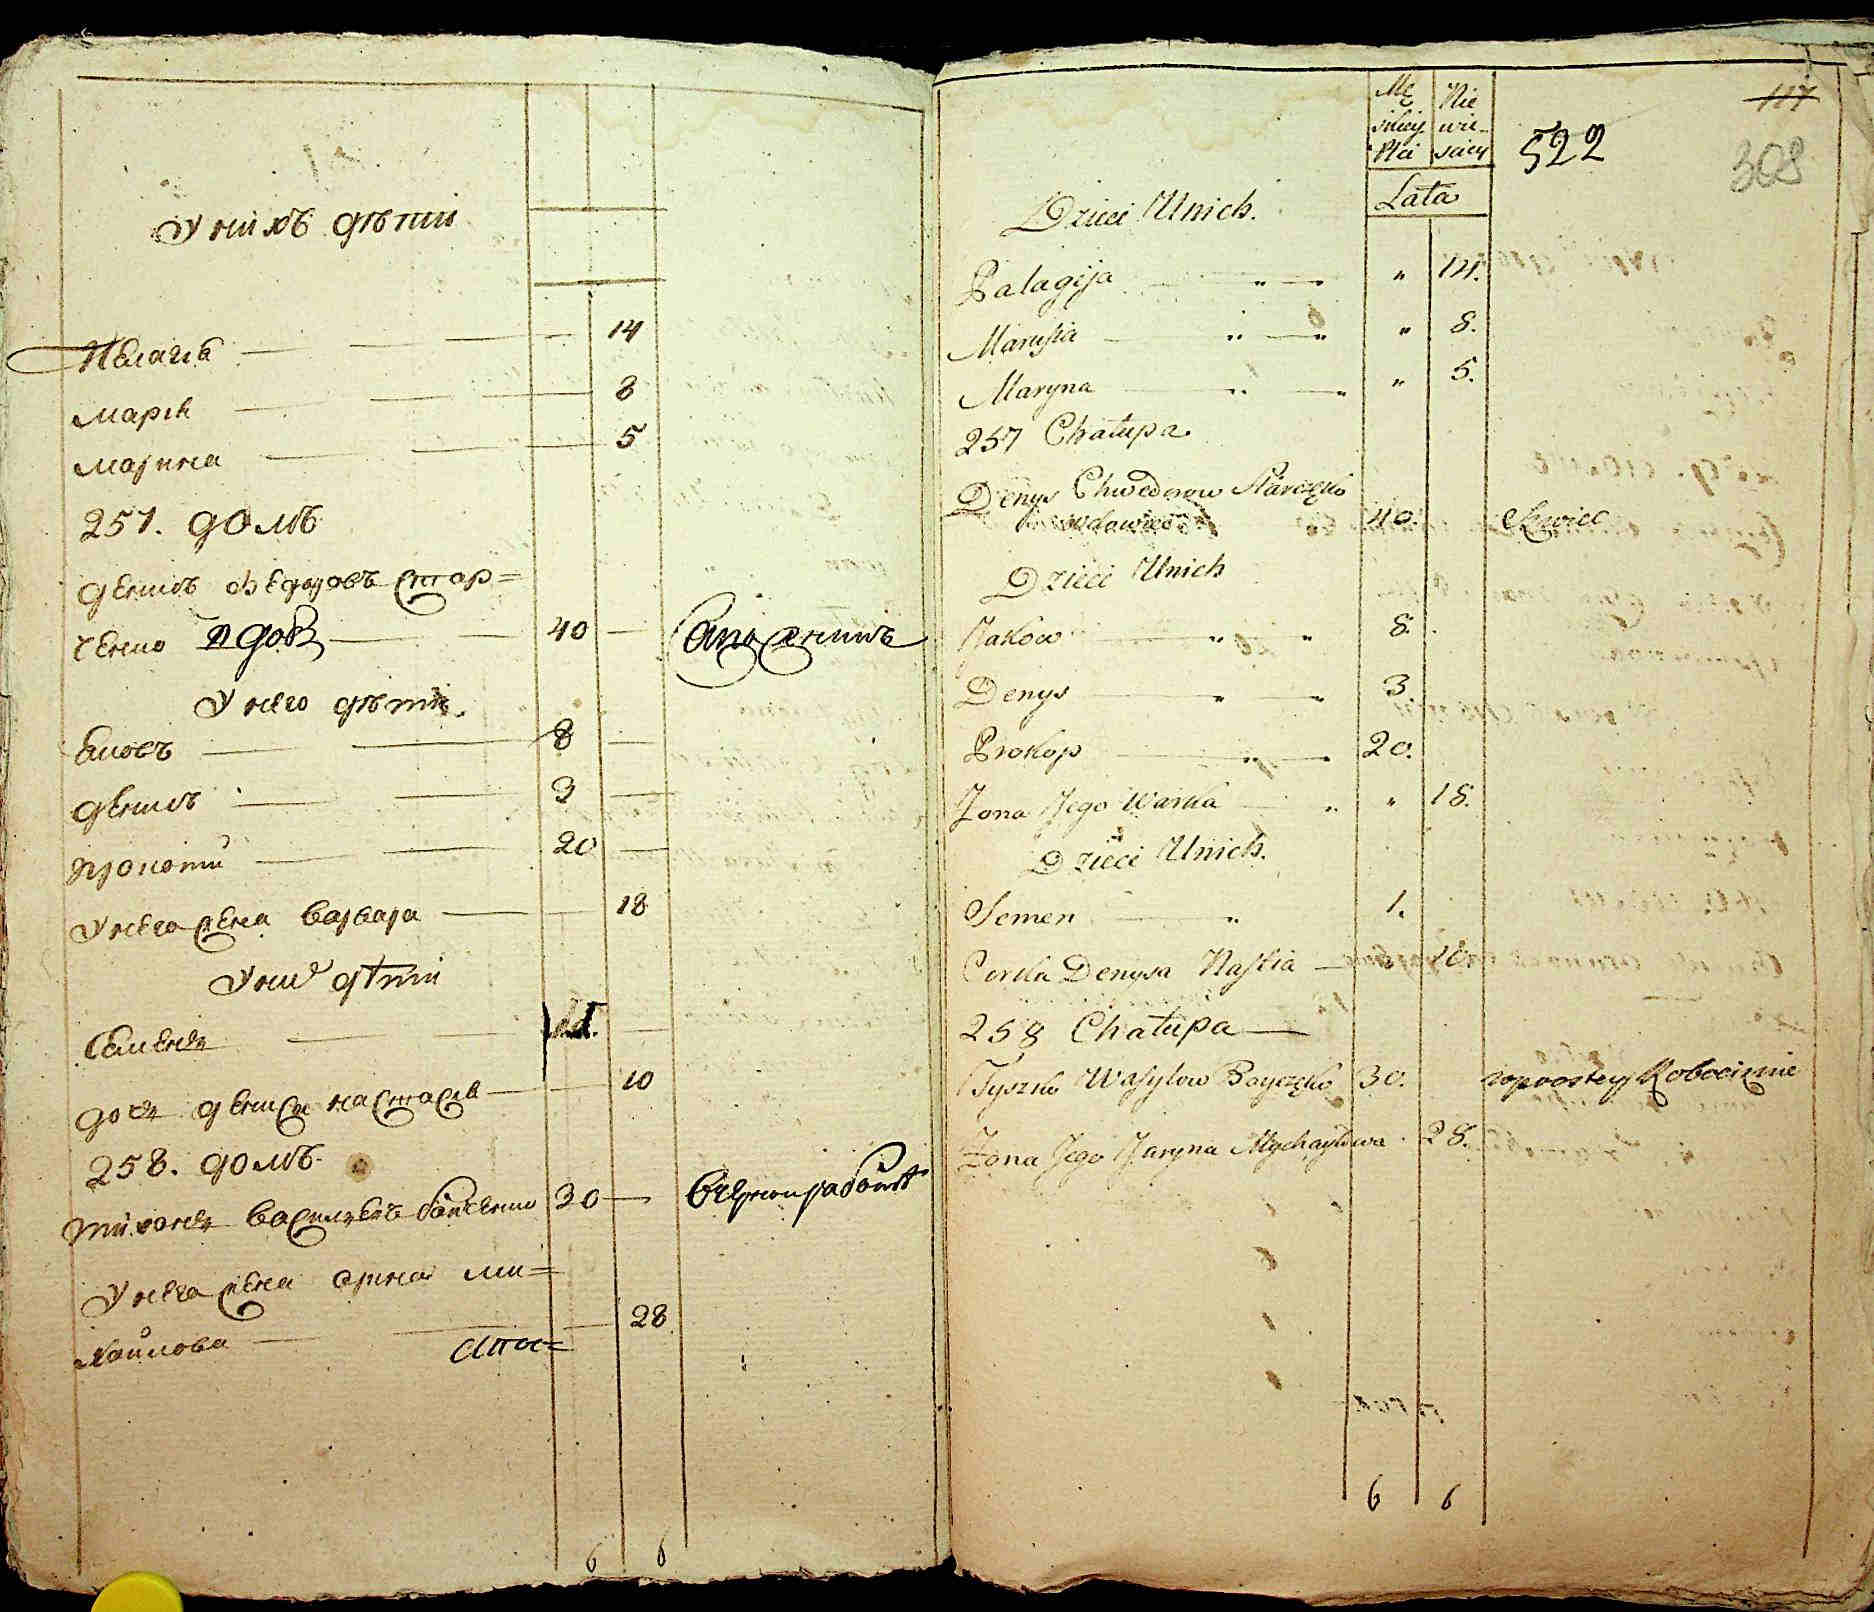 У нихъ дѣти
Пелагѣя 14
Марія 8
Марина 5
257. домъ
Денисъ Федоровъ Стар=
ченко вдовъ 40 сапожникъ
У него дѣти.
Яковъ 8
Денисъ 3
Прокопій 20
У него жена Варвара 18
У них дѣти
Семенъ
дочь Дениса Настасія 10
258. домъ.
Тихонъ Васильевъ 30
У него жена Арина Ми=
хайлова 28
6 6
Mę Nie
skiej wie
Płci sciey
522
117
308
Lata
Dzieci Unich.
Palagija " 14.
Marysia " 8.
Maryna " 5.
257 Chałupa
Denys Chwedorow Starczęko
wdowiec 40. Szwiec
Dzieci Unich
Jakow 8.
Denys 3.
Prokop 20.
Zona Jego Warka " 18.
Dzieci Unich.
Semen 1.
Corka Denysa Nastia 10.
258 Chałupa
Tyszko Wasylow Boyczęko 30. w prostey Robociznie
Zona Jego Jaryna Mychayłowa 28.
6 6